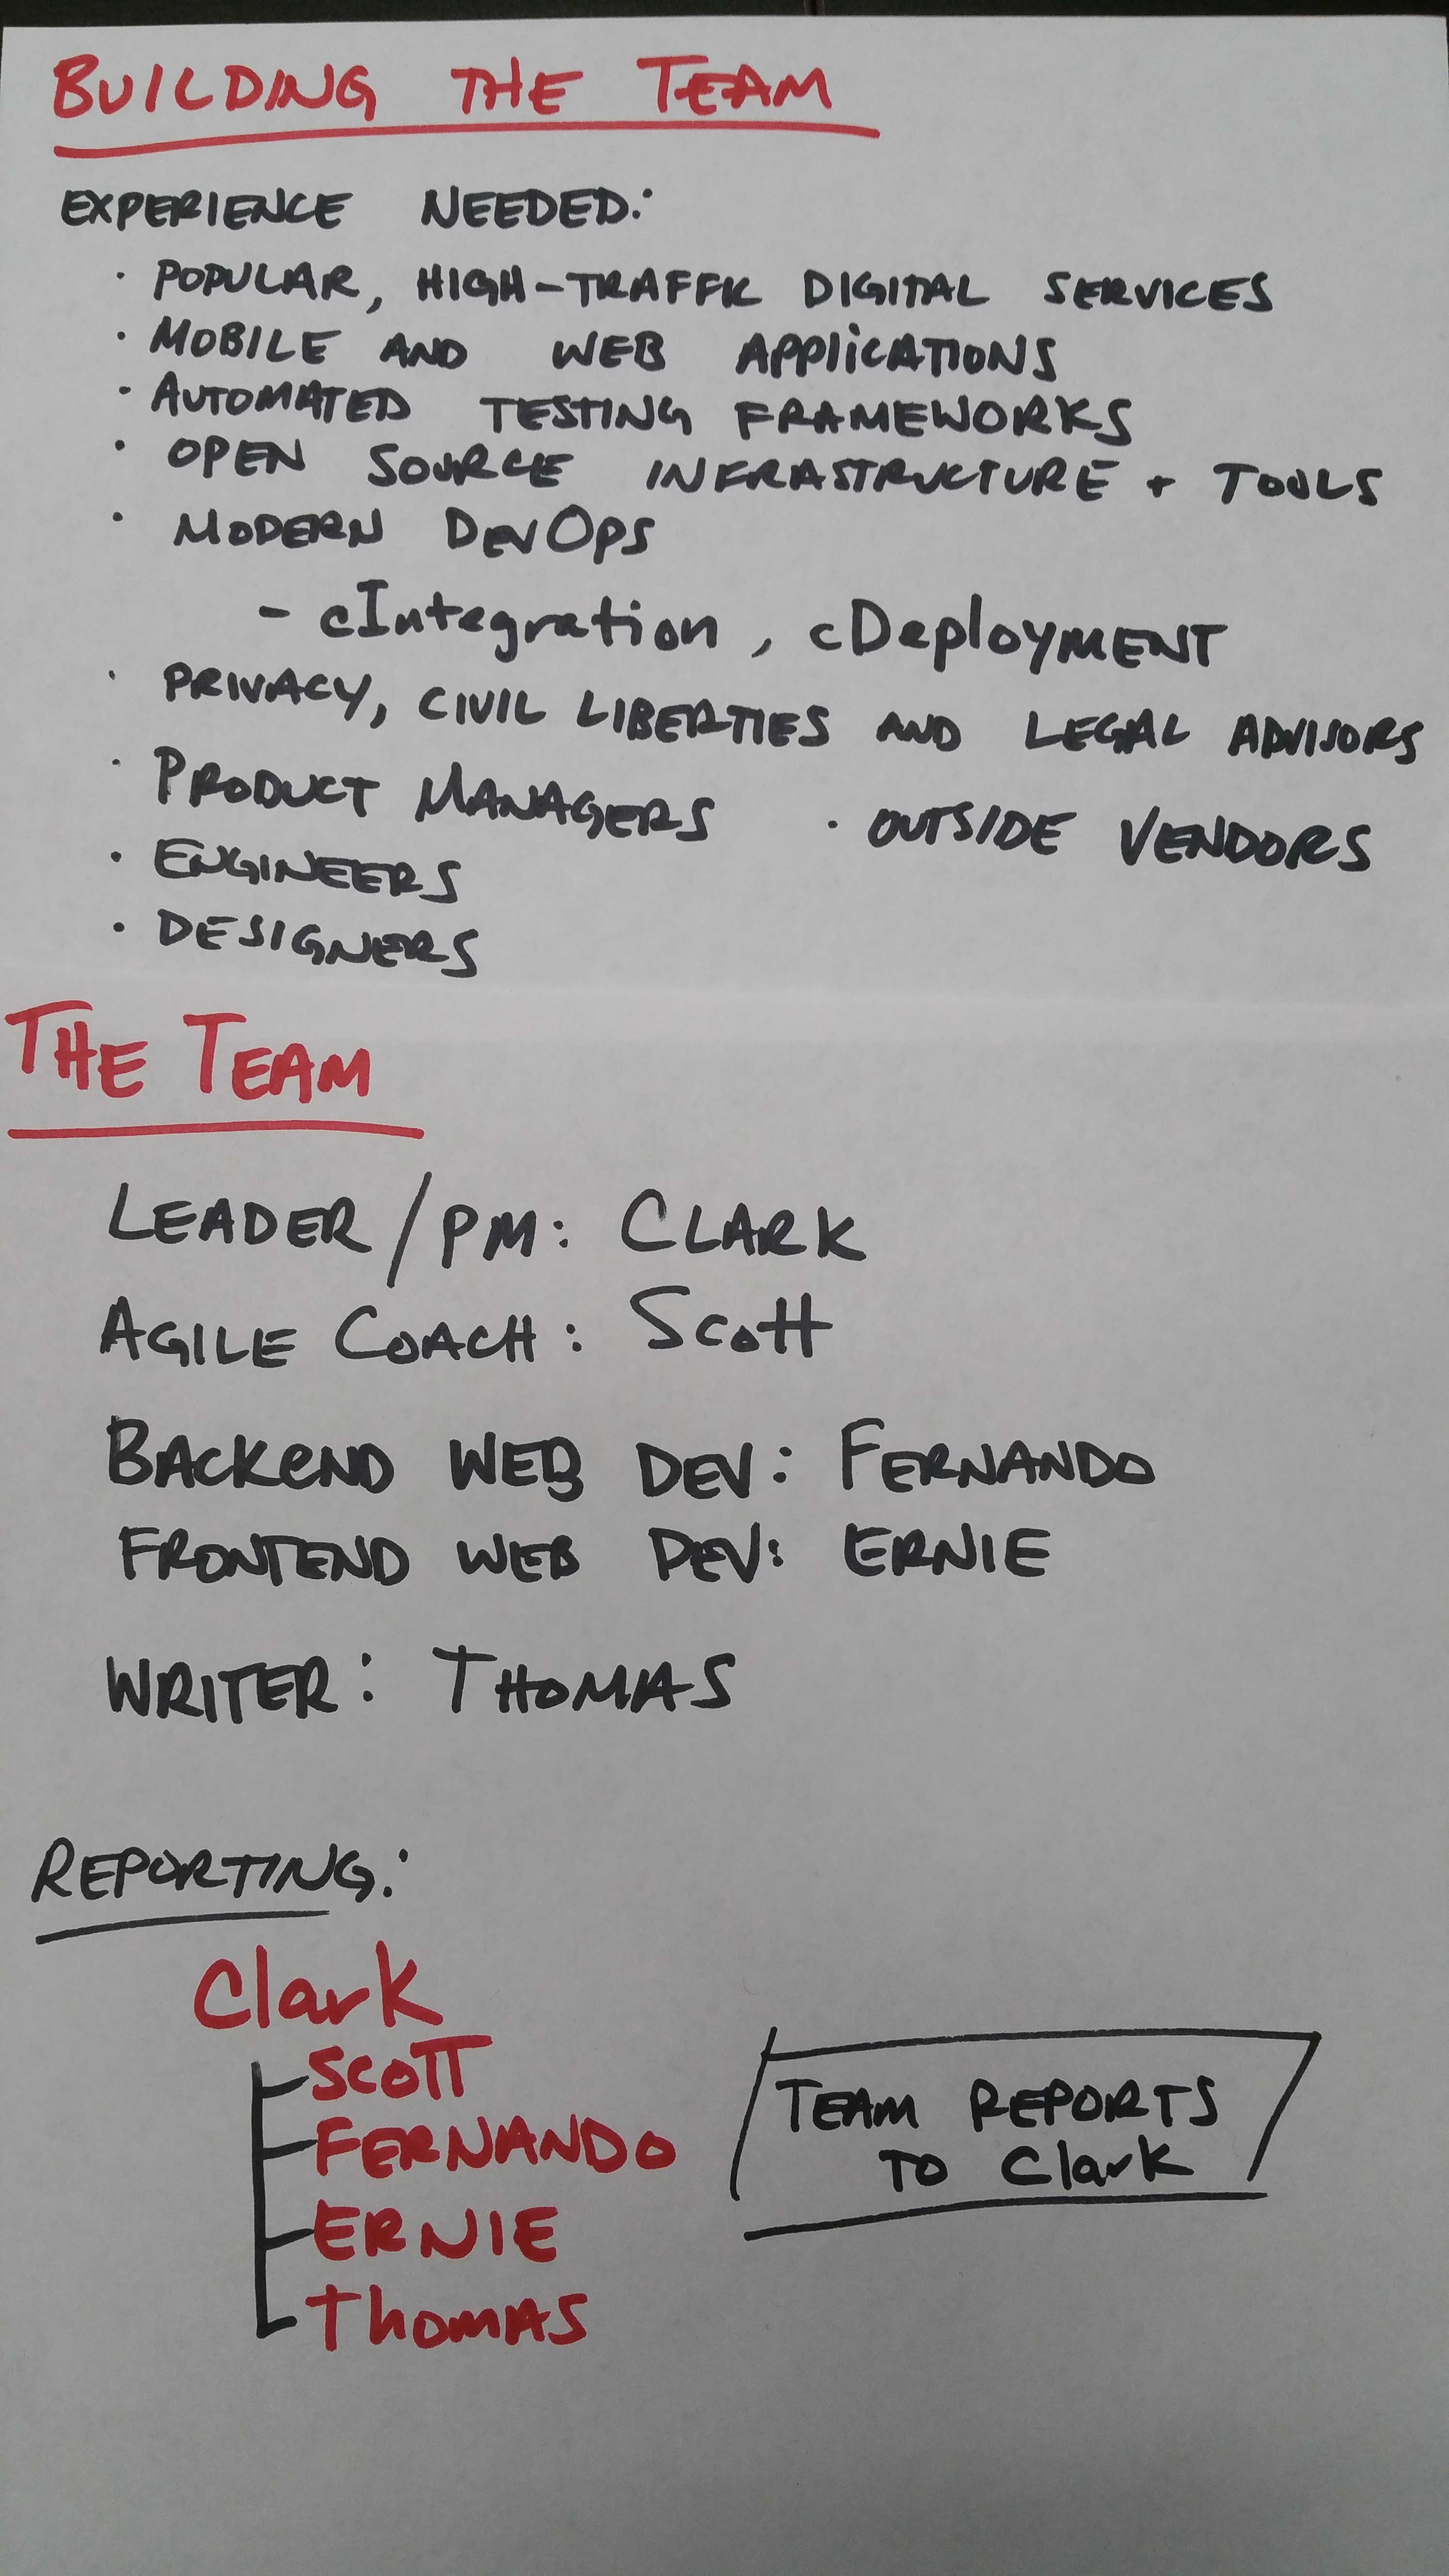 BUILDING THE TEAM
EXPERIENCE NEEDED:
· POPULAR, HIGH-TRAFFIC DIGITAL SERVICES
· MOBILE AND WEB APPLICATIONS
· AUTOMATED TESTING FRAMEWORKS
· OPEN SOURCE INFRASTRUCTURE + TOOLS
· MODERN DEVOPS
- cIntegration, cDeployMENT
· PRIVACY, CIVIL LIBERTIES AND LEGAL ADVISORS
· PRODUCT MANAGERS · OUTSIDE VENDORS
· ENGINEERS
· DESIGNERS
THE TEAM
LEADER/PM: CLARK
AGILE COACH: SCOTT
BACKEND WEB DEV: FERNANDO
FRONTEND WEB DEV: ERNIE
WRITER: THOMAS
REPORTING:
Clark
SCOTT
FERNANDO
ERNIE
THOMAS
TEAM REPORTS
TO Clark